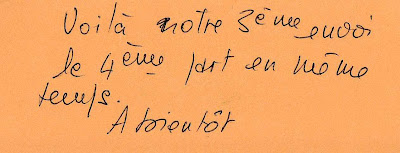 Voilà notre 3ème envoi
le 4ème part en même
temps.
A bientôt